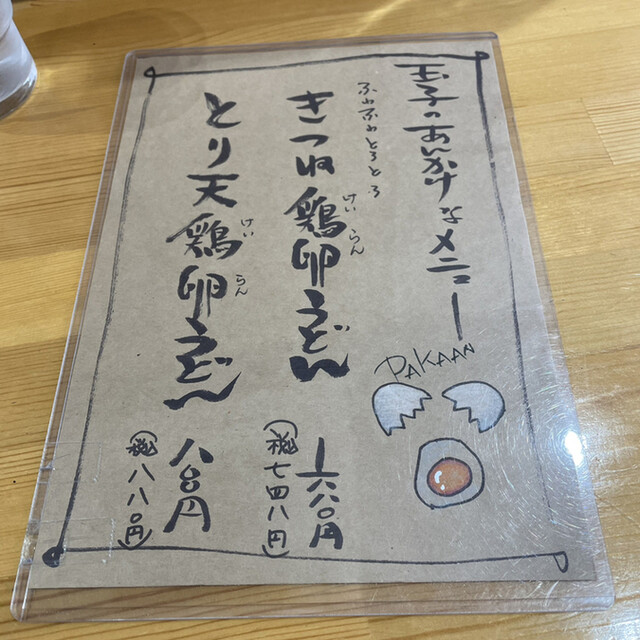 玉子のあんかけなメニュー
ふわふわとろとろ
きつね鶏卵うどん
けいらん
六八〇円
(税七四八円)
とり天鶏卵うどん
けいらん
八〇〇円
(税八八〇円)
PAKAAN